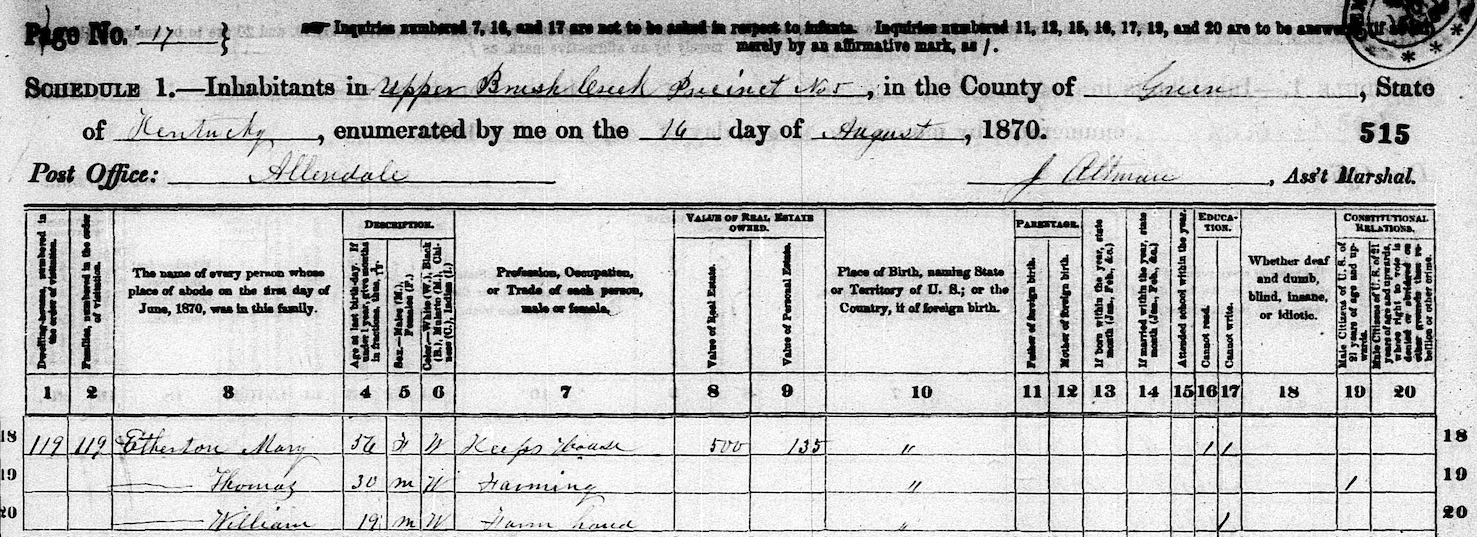 Page No. 17
Inquiries numbered 7, 16, and 17 are not to be asked in respect to infants. Inquiries numbered 11, 12, 15, 16, 17, 19, and 20 are to be answered (if at all)
merely by an affirmative mark, as /.
SCHEDULE 1.—Inhabitants in Upper Brush Creek Precinct No 5, in the County of Green, State
of Kentucky, enumerated by me on the 16 day of August, 1870. 515
Post Office: Allendale J Altman, Ass't Marshal.
Dwelling-houses, numbered in the order of visitation.
Families, numbered in the order of visitation.
The name of every person whose
place of abode on the first day of
June, 1870, was in this family.
DESCRIPTION.
Age at last birth-day. If under 1 year, give months in fractions, thus, 3/12.
Sex.—Males (M.), Females (F.)
Color.—White (W.), Black (B.), Mulatto (M.), Chinese (C.), Indian (I.)
Profession, Occupation,
or Trade of each person,
male or female.
VALUE OF REAL ESTATE
OWNED.
Value of Real Estate.
Value of Personal Estate.
Place of Birth, naming State
or Territory of U. S.; or the
Country, if of foreign birth.
PARENTAGE.
Father of foreign birth.
Mother of foreign birth.
If born within the year, state month (Jan., Feb., &c.)
If married within the year, state month (Jan., Feb., &c.)
Attended school within the year.
EDUCA-
TION.
Cannot read.
Cannot write.
Whether deaf
and dumb,
blind, insane,
or idiotic.
CONSTITUTIONAL
RELATIONS.
Male Citizens of U. S. of 21 years of age and upwards.
Male Citizens of U. S. of 21 years of age and upwards, where right to vote is denied or abridged on other grounds than rebellion or other crime.
1 2 3 4 5 6 7 8 9 10 11 12 13 14 15 16 17 18 19 20
18 119 119 Etherton Mary 56 F W Keeps House 500 135 " / / 18
19 —— Thomas 30 m W Farming " / 19
20 —— William 19 m W Farm hand " / 20